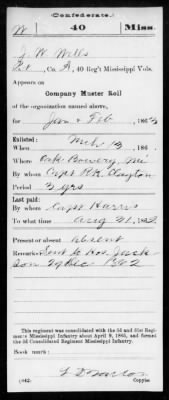 (Confederate.)
W 40 Miss.
J. W. Wells
Pvt, Co. A, 40 Reg't Mississippi Vols.
Appears on
Company Muster Roll
of the organization named above,
for Jan & Feb, 1863
Enlisted:
When Mch 13, 186 .
Where Oak Bowery, Mi
By whom Capt R.R. Clayton
Period 3 yrs
Last paid:
By whom Capt Harris
To what time Aug 31, 1862.
Present or absent Absent
Remarks: Sent to Hos. Jack-
son 29 Dec 1862
This regiment was consolidated with the 3d and 31st Regi-
ments Mississippi Infantry about April 9, 1865, and formed
the 3d Consolidated Regiment Mississippi Infantry.
Book mark:
(642)
Copyist.